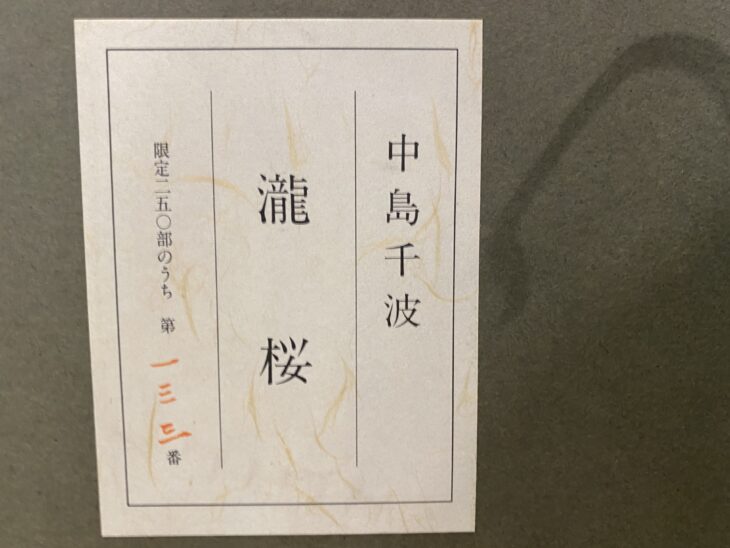 中島千波
瀧桜
限定二五〇部のうち 第一三三番